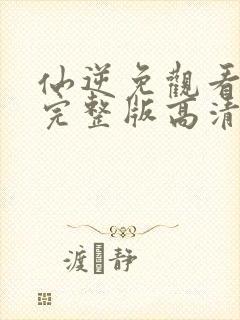 仙逆免觀看
完整版高清
渡 静